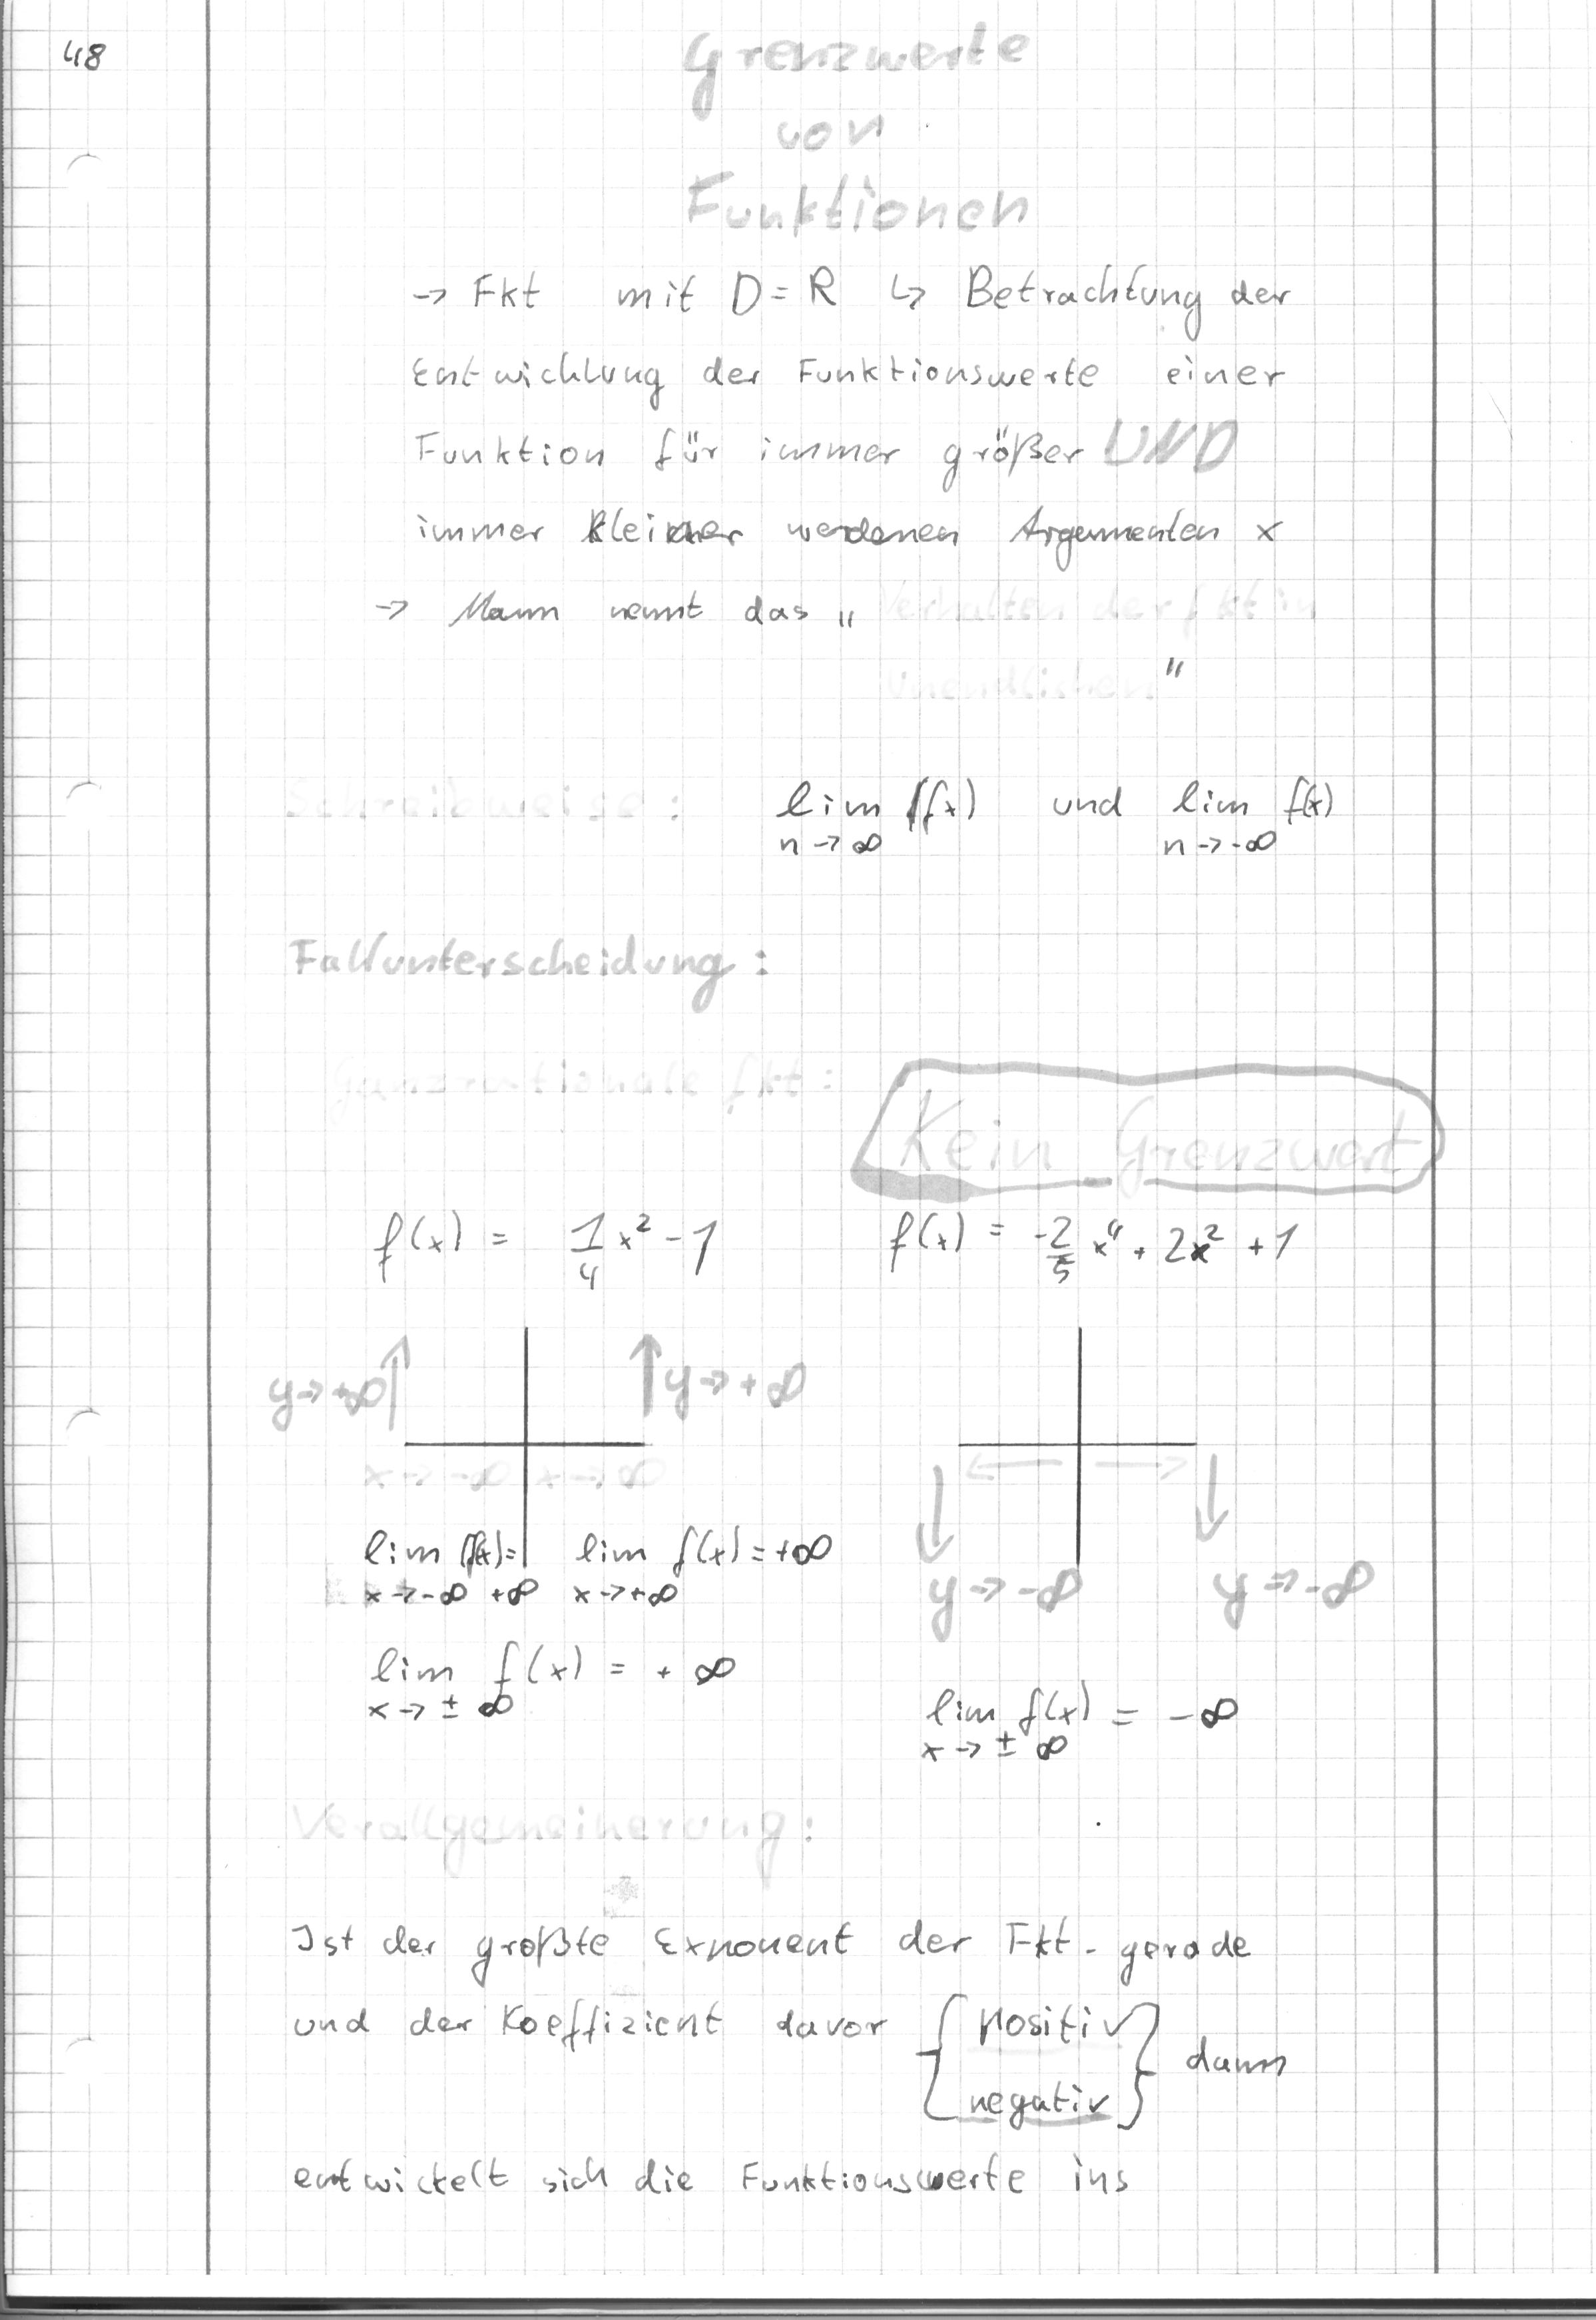 48
Grenzwerte
von
Funktionen
→ Fkt mit D = R ↳ Betrachtung der
Entwicklung der Funktionswerte einer
Funktion für immer größer UND
immer kleiner werdenen Argumenten x
→ Mann nennt das „ Verhalten der fkt in
Unendlichen "
Schreibweise : lim f(x) und lim f(x)
n → ∞ n → -∞
Fallunterscheidung :
Ganzrationale fkt :
Kein Grenzwert
f(x) = 1/4 x² - 1 f(x) = -2/5 x⁴ + 2x² + 1
y → +∞ y → + ∞
x → -∞ x → ∞
lim f(x) = lim f(x) = +∞
x → -∞ +∞ x → +∞
y → -∞ y → -∞
lim f(x) = + ∞
x → ± ∞
lim f(x) = -∞
x → ± ∞
Verallgemeinerung :
Ist der größte Exponent der Fkt. gerade
und der Koeffizient davor { positiv } dann
negativ
entwickelt sich die Funktionswerte ins